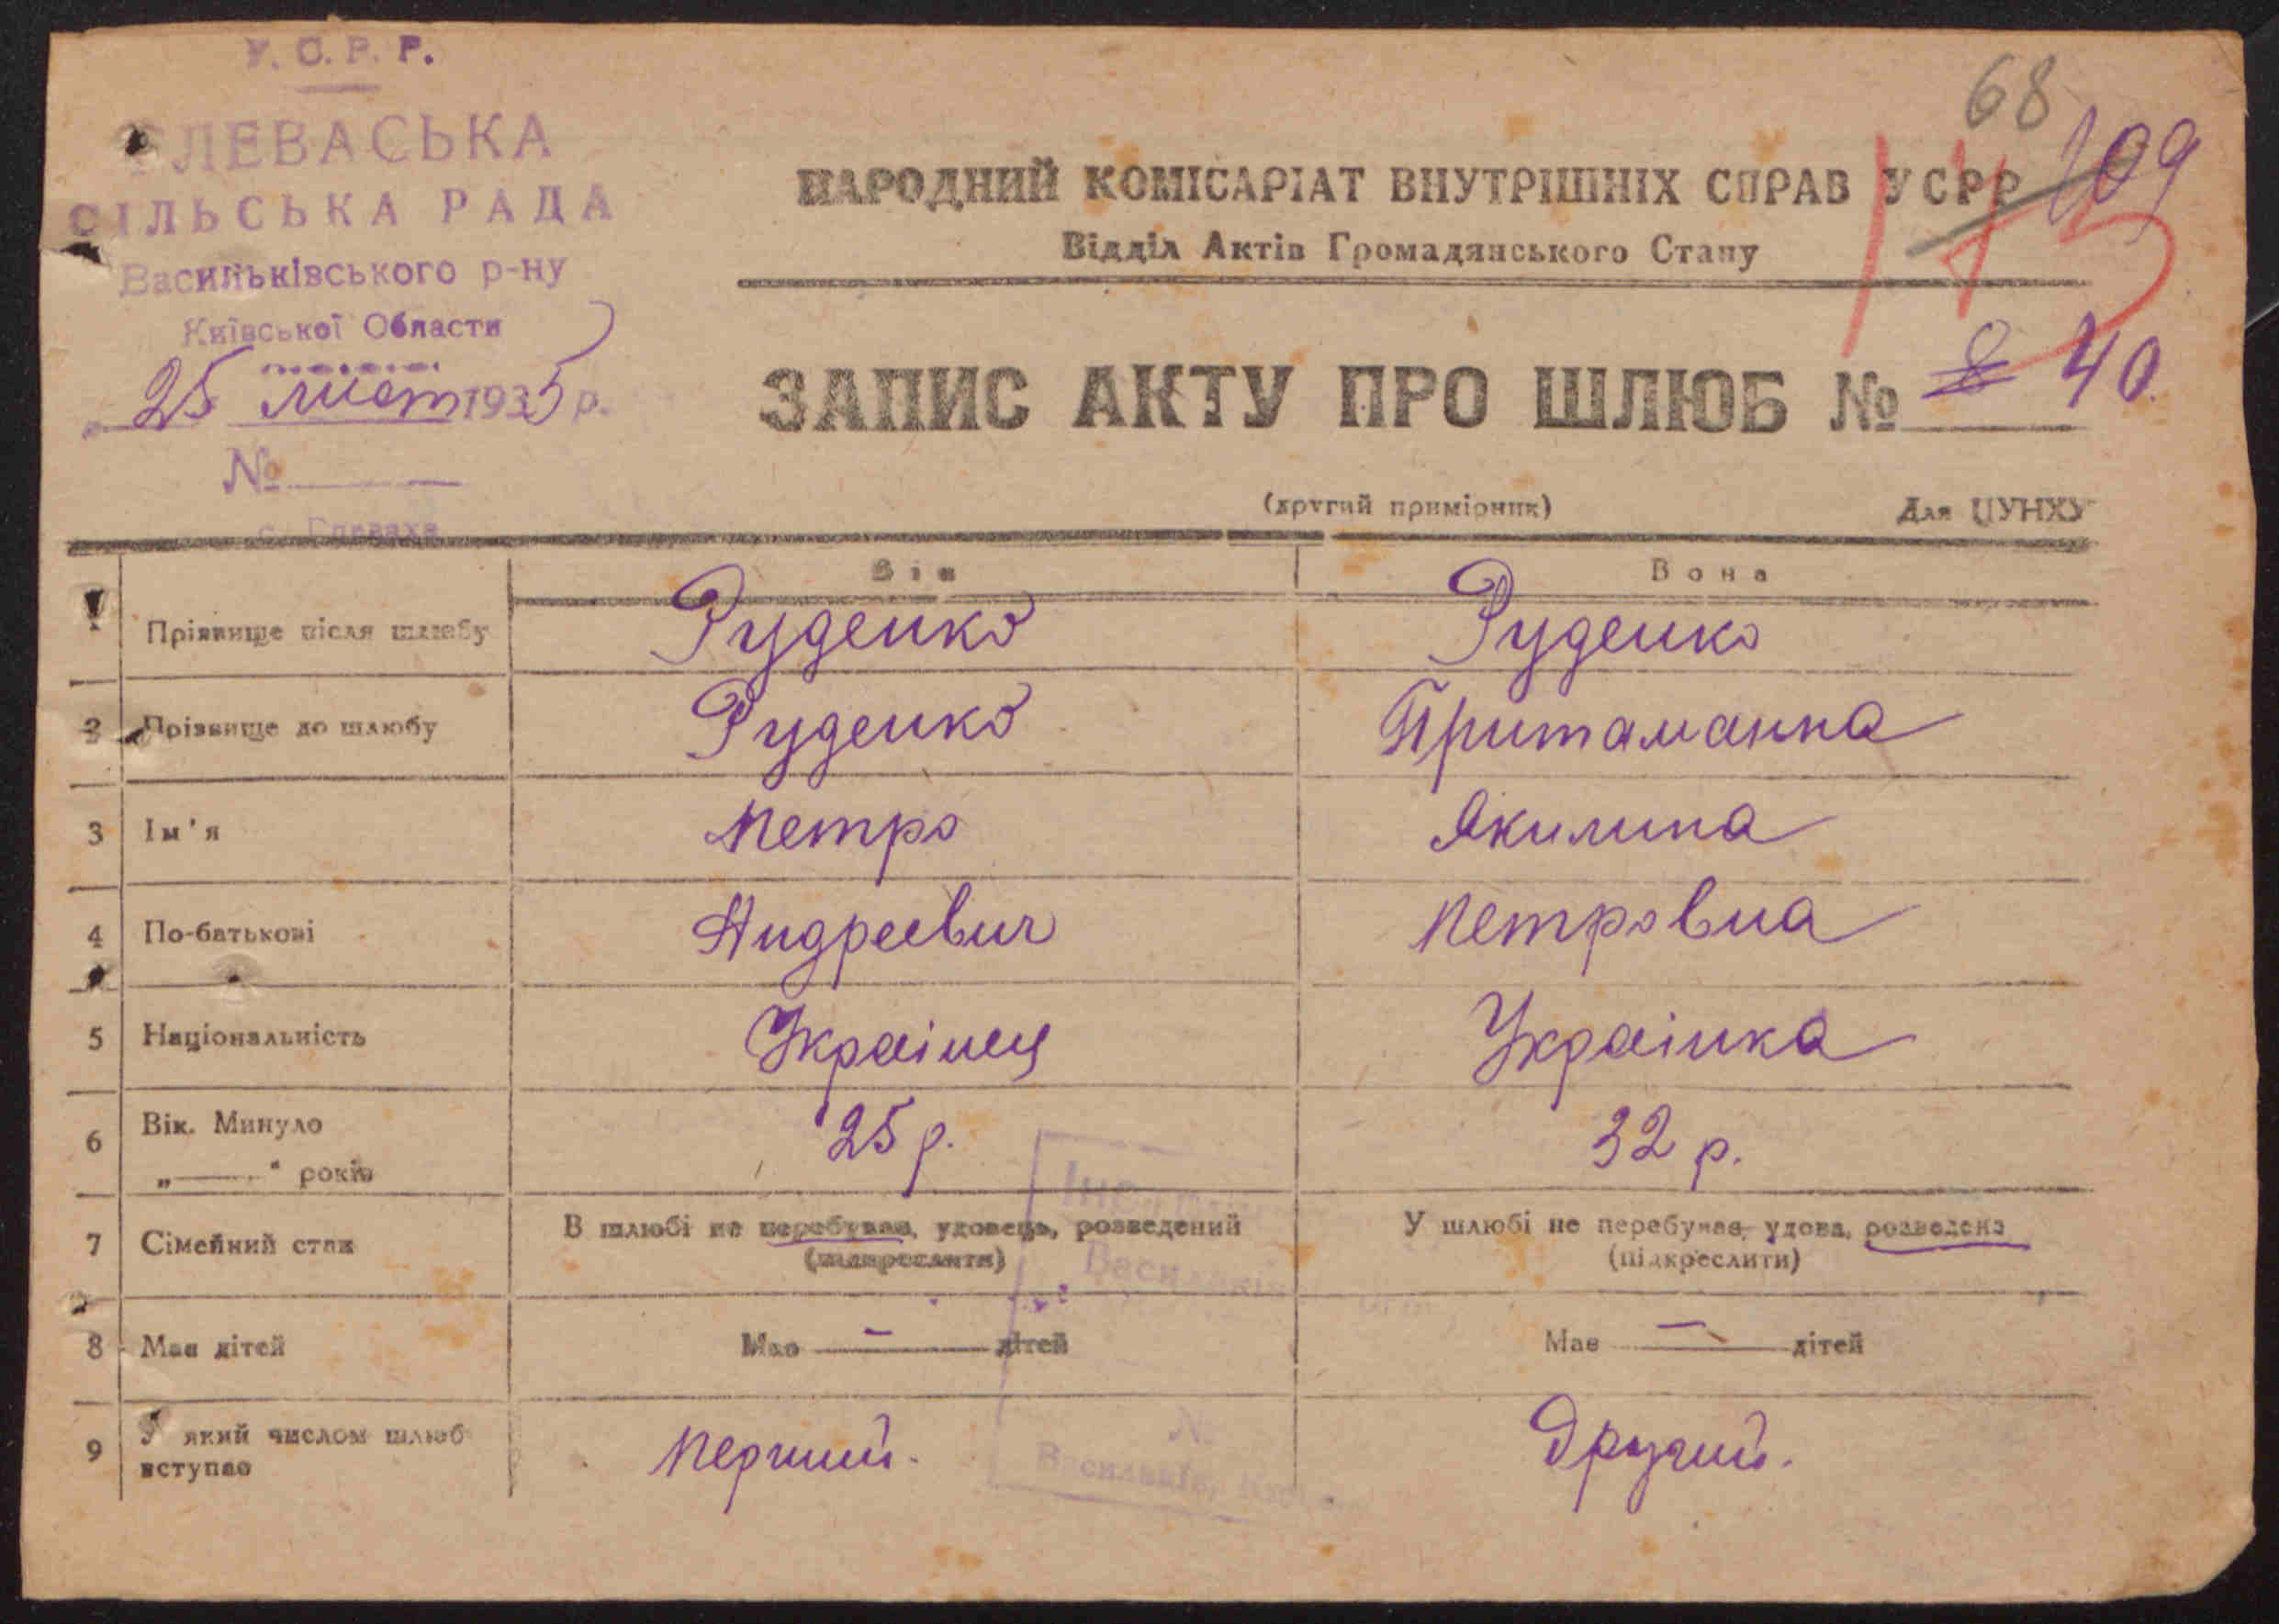 У.С.Р.Р.
ГЛЕВАСЬКА
СІЛЬСЬКА РАДА
Васильківського р-ну
Київської Области
25 лист 1935 р.
№
с. Глеваха
68
109
145
НАРОДНИЙ КОМІСАРІАТ ВНУТРІШНІХ СПРАВ УСРР
Відділ Актів Громадянського Стану
ЗАПИС АКТУ ПРО ШЛЮБ № 8 40.
(другий примірник) Для ЦУНХУ
Він Вона
1 Прізвище після шлюбу Руденко Руденко
2 Прізвище до шлюбу Руденко Притаманна
3 Ім'я Петро Якилина
4 По-батькові Андреевич Петровна
5 Національність Украінец Украінка
6 Вік. Минуло 25 р. 32 р.
„——" років
7 Сімейний стан В шлюбі не перебував, удовець, розведений У шлюбі не перебуває, удова, розведена
(підкреслити) (підкреслити)
8 Має дітей Має — дітей Має — дітей
9 У який числом шлюб вступає Перший. Другий.
Васильків
№
Васильків,